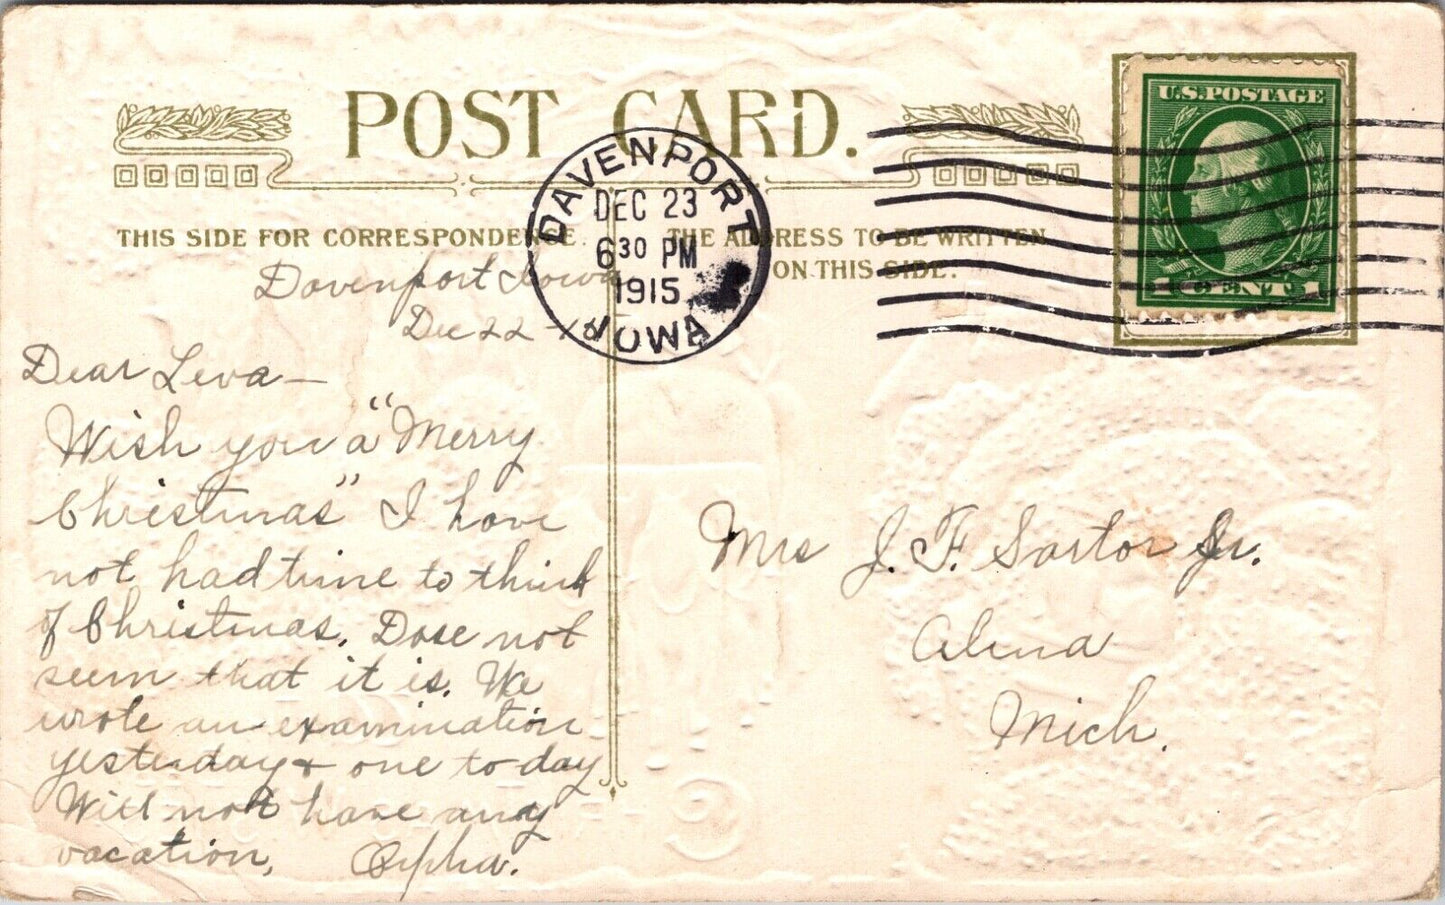 POST CARD.
THIS SIDE FOR CORRESPONDENCE.
THE ADDRESS TO BE WRITTEN
ON THIS SIDE.
DAVENPORT
DEC 23
6 30 PM
1915
IOWA
U.S. POSTAGE
1 CENT 1
Davenport Iowa
Dec 22 - 15
Dear Leva —
Wish you a "Merry
Christmas" I have
not had time to think
of Christmas. Dose not
seem that it is. We
wrote an examination
yesterday & one to day
Will not have any
vacation, Orpha.
Mrs J. F. Sartor Jr.
Alma
Mich.